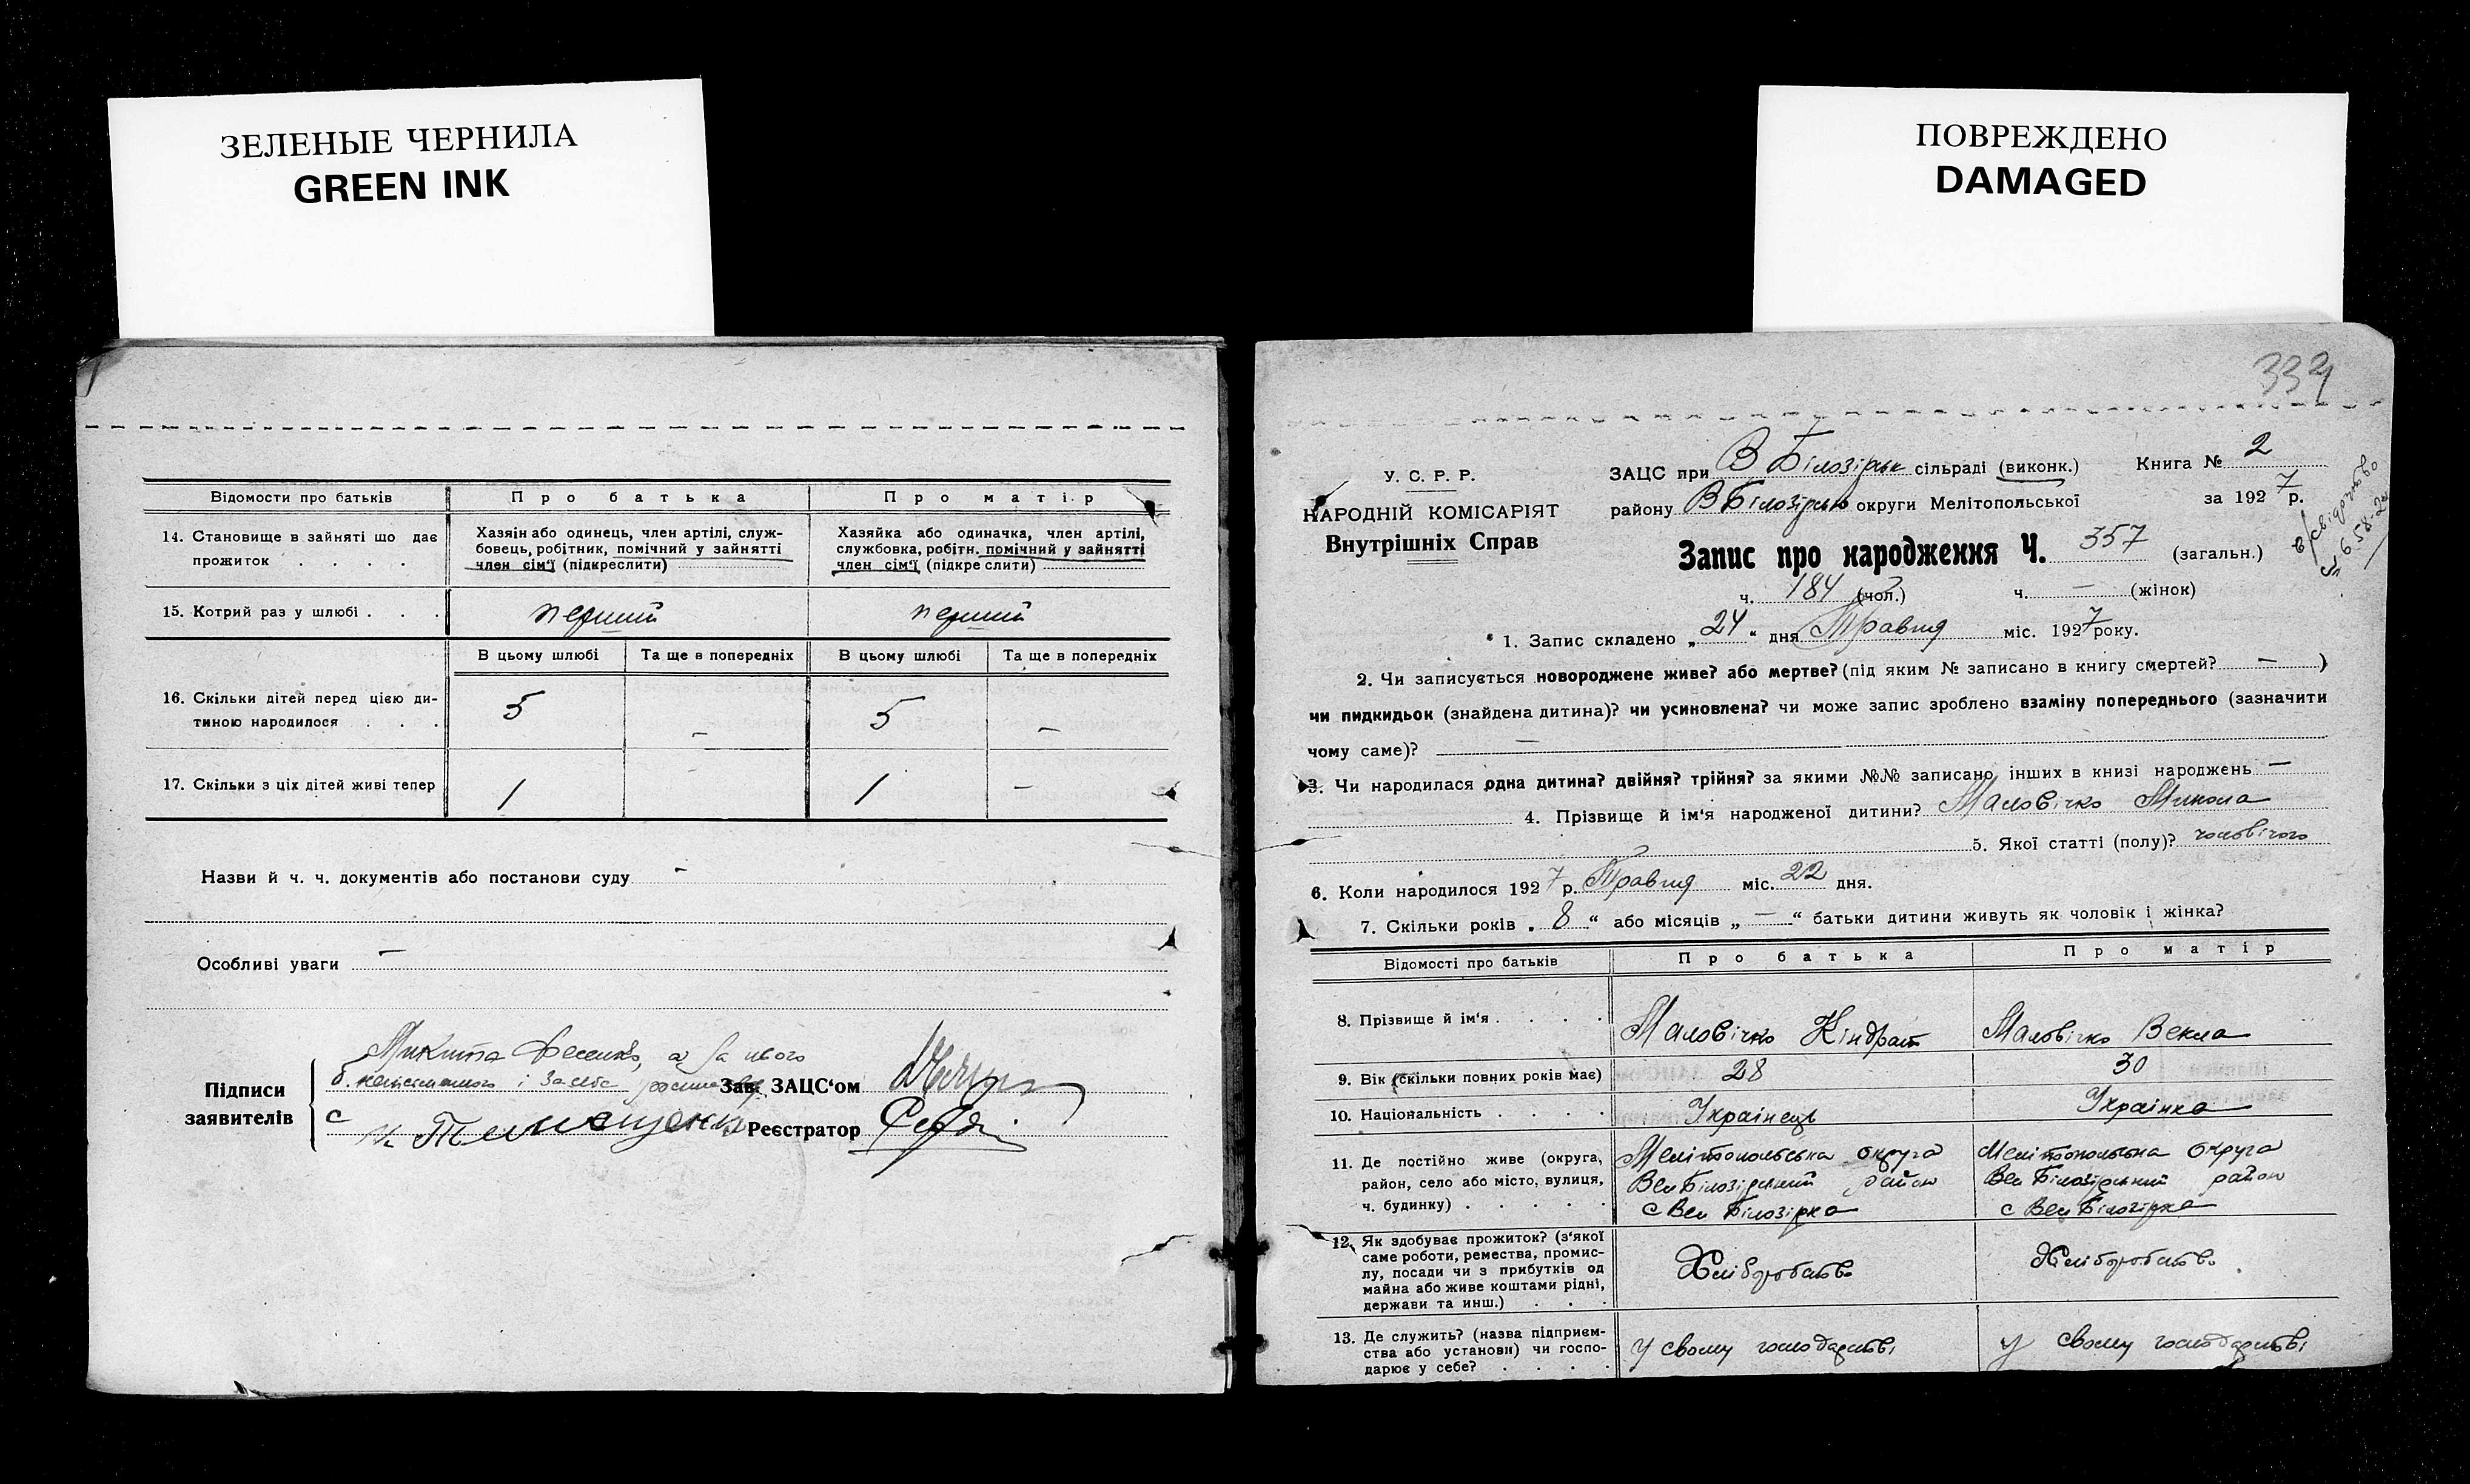 ЗЕЛЕНЫЕ ЧЕРНИЛА
GREEN INK
ПОВРЕЖДЕНО
DAMAGED
Відомости про батьків
Про батька
Про матір
14. Становище в зайняті що дає
прожиток . . . .
Хазяін або одинець, член артілі, служ-
бовець, робітник, помічний у зайнятті
член сім'ї (підкреслити)
Хазяйка або одиначка, член артілі,
службовка, робітн. помічний у зайнятті
член сім'ї (підкреслити)
15. Котрий раз у шлюбі . . .
перший
перший
В цьому шлюбі
Та ще в попередніх
В цьому шлюбі
Та ще в попередніх
16. Скільки дітей перед цією ди-
тиною народилося . . .
5
–
5
–
17. Скільки з ціх дітей живі тепер
1
1
–
Назви й ч. ч. документів або постанови суду –
Особливі уваги –
Микита а за нього
Підписи
заявителів
Зав. ЗАЦС'ом
Реєстратор
У. С. Р. Р.
НАРОДНІЙ КОМІСАРІЯТ
Внутрішніх Справ
332
ЗАЦС при В Білозірськ сільраді (виконк.)
Книга № 2
району В Білозірсько округи Мелітопольської
за 1927 р.
Запис про народження Ч. 357 (загальн.)
ч. 184 (чол.) ч. — (жінок)
1. Запис складено „24“ дня Травня міс. 1927 року.
2. Чи записується новороджене живе? або мертве? (під яким № записано в книгу смертей? — )
чи пидкидьок (знайдена дитина)? чи усиновлена? чи може запис зроблено взаміну попереднього (зазначити
чому саме)? —
3. Чи народилася одна дитина? двійня? трійня? за якими №№ записано інших в книзі народжень —
4. Прізвище й ім'я народженої дитини? Маловічко Микола
5. Якої статті (полу)? чоловічого
6. Коли народилося 1927 р. Травня міс. 22 дня.
7. Скільки років „8“ або місяців „—“ батьки дитини живуть як чоловік і жінка?
Відомості про батьків
Про батька
Про матір
8. Прізвище й ім'я . . . .
Маловічко Кіндрат
Маловічко Векла
9. Вік (скільки повних років має)
28
30
10. Національність . . . .
Українець
Українка
11. Де постійно живе (округа,
район, село або місто, вулиця,
ч. будинку) . . . . .
Мелітопольська округа
Вел Білозірський район
с Вел Білозірка
Мелітопольська округа
Вел Білозірський район
с Вел Білозірка
12. Як здобуває прожиток? (з'якої
саме роботи, ремества, промис-
лу, посади чи з прибутків од
майна або живе коштами рідні,
держави та инш.) . . .
Хліборобство
Хліборобство
13. Де служить? (назва підприєм-
ства або установи) чи госпо-
дарює у себе? . . . .
у свому господарстві
у свому господарстві